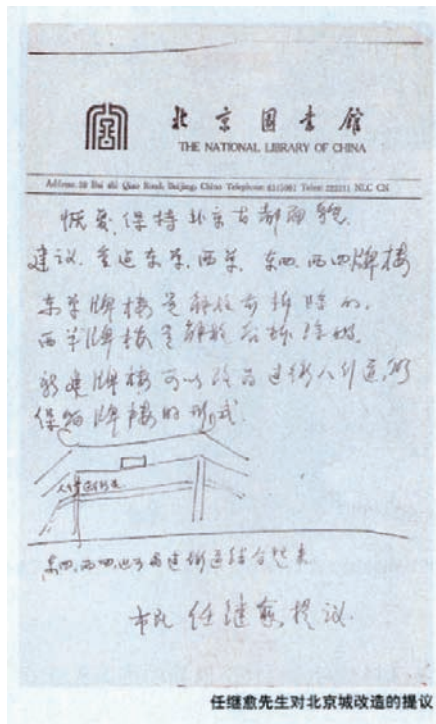 北京图书馆
THE NATIONAL LIBRARY OF CHINA
Address: 39 Bai shi Qiao Road, Beijing, China Telephone: 8315063 Telex: 222211 NLC CN
恢复、保持北京古都面貌.
建议. 重造东单. 西单. 东四. 西四牌楼
东单牌楼是解放前拆除的.
西单牌楼是解放后拆除的.
新建牌楼可以改为过街人行道,
保留牌楼的形式.
人行过街道
东四. 西四. 也可与过街道结合起来
市民 任继愈 提议.
任继愈先生对北京城改造的提议